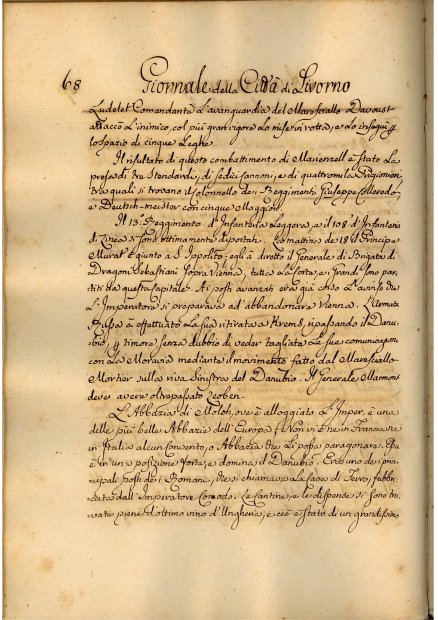 68 Giornale della Città di Livorno
Ludelet Comandante L'avanguardia del Maresciallo Davoust
attaccò L'inimico, col più gran vigore Lo mise in rotta, e Lo inseguì p
lo spazio di cinque Leghe.
Il risultato di questo combattimento di Marienzell è stato La
presa di tre Stendardi, di sedici Cannoni, e di quattromila Prigionieri
tra quali si trovano il Colonnello de i Reggimenti Giuseppe Colleredo
e Deutsch-meister con cinque Maggiori.
Il 13. Reggimento d'Infanteria Leggera, e il 108 d'Infanteria
di Linea si sono ottimamente diportati. La mattina de 18 il Principe
Murat è giunto a S. Ippolito; egli à diretto il Generale di Brigata di
Dragoni Sebastiani sopra Vienna, tutta La Corte, e i Grandi sono par-
titi da questa Capitale. Ai posti avanzati era già corso L'avviso che
L'Imperatore si preparava ad abbandonare Vienna. L'Armata
Russa à effettuato La sua ritirata a Krems, ripassando il Danu-
bio, p timore senza dubbio di veder tagliate Le sue comunicazioni
con La Moravia mediante il movimento fatto dal Maresciallo
Mortier sulla riva Sinistra del Danubio. Il Generale Marmont
deve avere oltrepassato Leoben.
L'Abbazia di Moloh, ove è alloggiato L'Imper. è una
delle più belle Abbazie dell'Europa. Non vi è ne in Francia, ne
in Italia alcun Convento, o Abbazia che Li possa paragonare. Ella
è in una posizione forte, e domina il Danubio. Era uno dei prin-
cipali posti dei Romani, che si chiamava La Casa di Ferro, fabbri-
cata dall'Imperatore Comodo. Le Cantine, e le dispense si sono tro-
vate piene d'ottimo vino d'Ungheria, e ciò è stato di un grandissimo